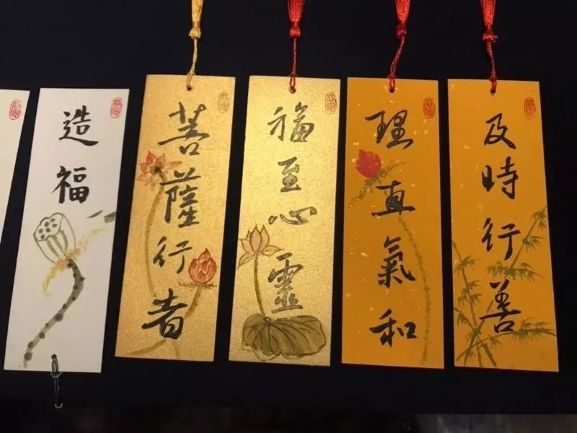 造福
菩薩行者
福至心靈
理直氣和
及時行善